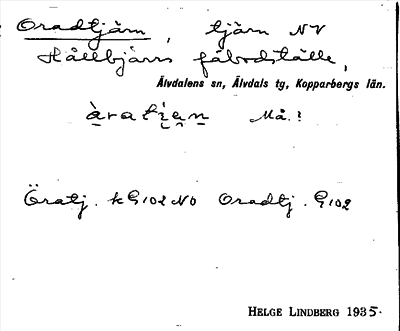 Oradtjärn, tjärn NV
Hållbjärs fäbodställe,
Älvdalens sn, Älvdals tg, Kopparbergs län.
Må.?
Öratj. k G102 NO Oradtj. G102
HELGE LINDBERG 1935.